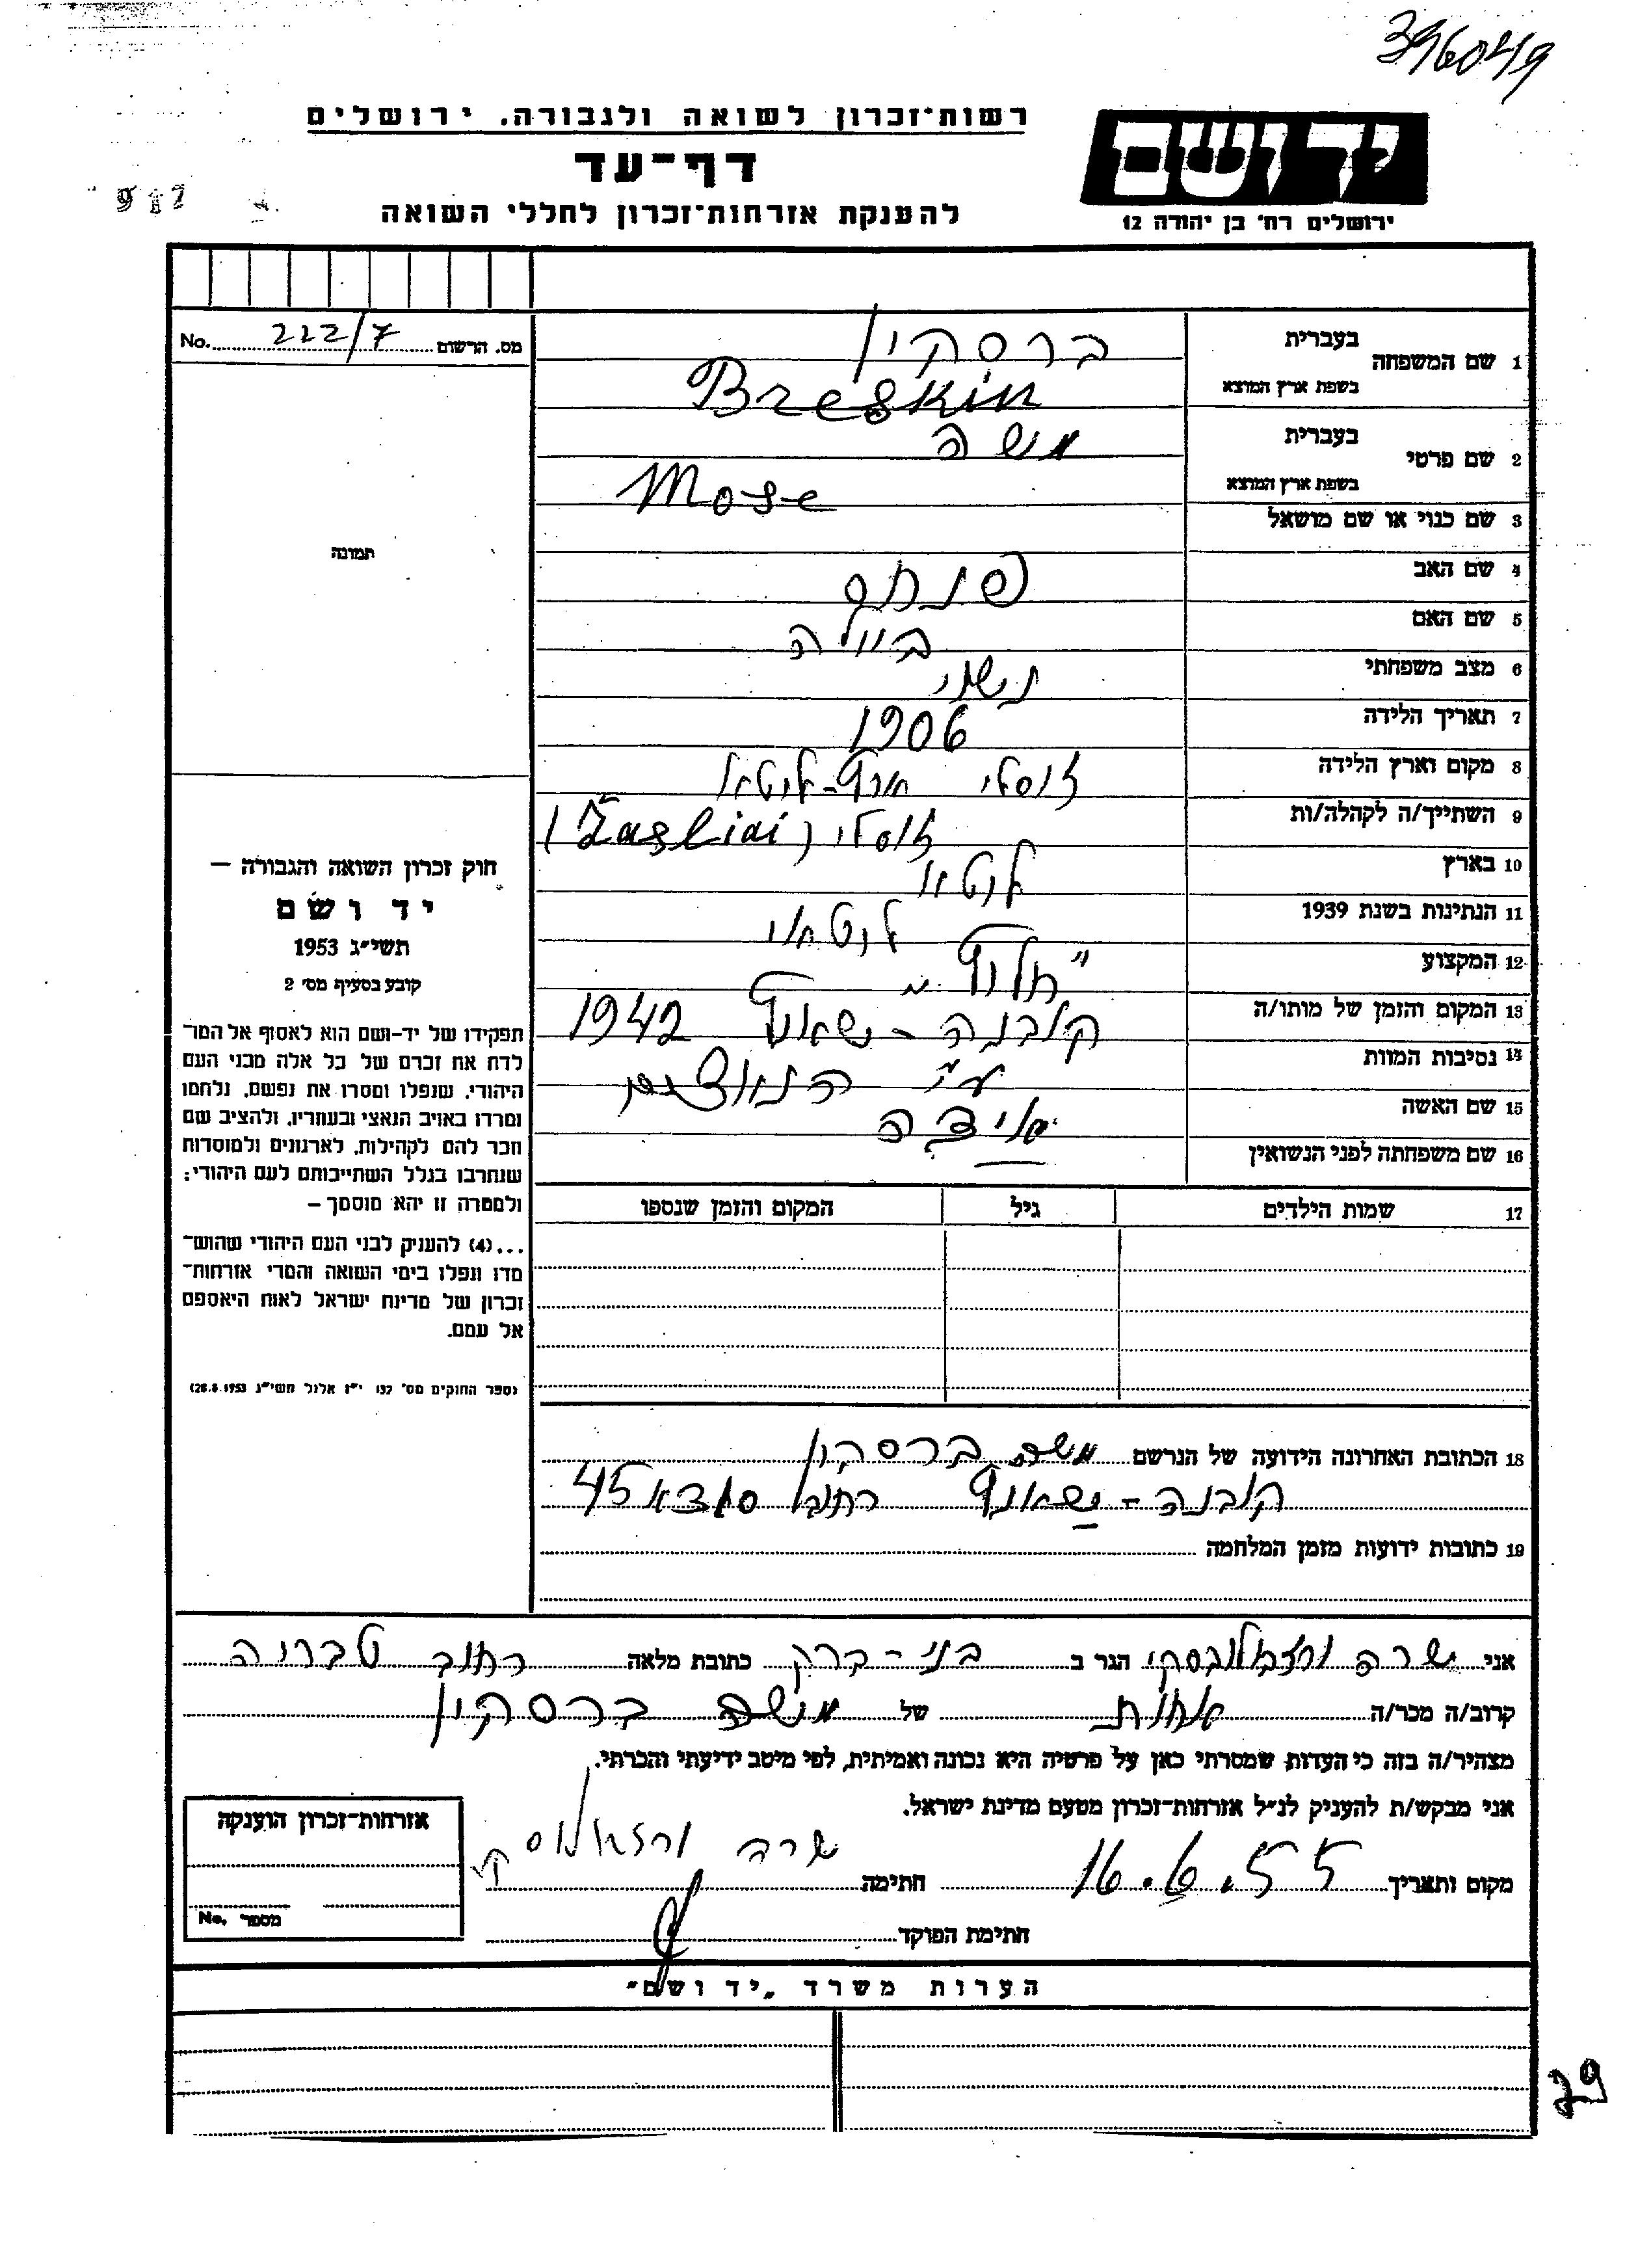 396049
רשות-זכרון לשואה ולגבורה. ירושלים
דף-עד
להענקת אזרחות-זכרון לחללי השואה
ידושם
ירושלים רח' בן יהודה 12
מס. הרשום 222/7 No.
1 שם המשפחה בעברית ברסקין
בשפת ארץ המוצא Breskin
2 שם פרטי בעברית משה
בשפת ארץ המוצא Mose
3 שם כנוי או שם מושאל
4 שם האב
5 שם האם ביילה
6 מצב משפחתי נשוי
7 תאריך הלידה 1906
8 מקום וארץ הלידה זוסלי ליטא
9 השתייך/ה לקהלה/ות זוסלי (Žasliai)
10 בארץ ליטא
11 הנתינות בשנת 1939 ליטאי
12 המקצוע
13 המקום והזמן של מותו/ה קובנה - 1942
14 נסיבות המוות ע"י הנאצים
15 שם האשה אידה
16 שם משפחתה לפני הנשואין —
17 שמות הילדים גיל המקום והזמן שנספו
18 הכתובת האחרונה הידועה של הנרשם משה ברסקין
קובנה - רחוב 45
19 כתובות ידועות מזמן המלחמה
תמונה
חוק זכרון השואה והגבורה —
יד ושם
תשי"ג 1953
קובע בסעיף מס' 2
תפקידו של יד-ושם הוא לאסוף אל המו-
לדת את זכרם של כל אלה מבני העם
היהודי, שנפלו ומסרו את נפשם, נלחמו
ומרדו באויב הנאצי ובעוזריו, ולהציב שם
וזכר להם לקהילות, לארגונים ולמוסדות
שנחרבו בגלל השתייכותם לעם היהודי;
ולמטרה זו יהא מוסמך —
...(4) להעניק לבני העם היהודי שהוש-
מדו ונפלו בימי השואה והמרי אזרחות-
זכרון של מדינת ישראל לאות היאספם
אל עמם.
(ספר החוקים מס' 132 י"ז אלול תשי"ג 28.8.1953)
אני שרה הגר ב בני-ברק כתובת מלאה רחוב טבריה
קרוב/ה מכר/ה אחות של משה ברסקין
מצהיר/ה בזה כי העדות שמסרתי כאן על פרטיה היא נכונה ואמיתית, לפי מיטב ידיעתי והכרתי.
אני מבקש/ת להעניק לנ"ל אזרחות-זכרון מטעם מדינת ישראל.
מקום ותאריך 16.6.55 חתימה שרה
חתימת הפוקד
אזרחות-זכרון הוענקה
מספר No.
הערות משרד „יד ושם"
79